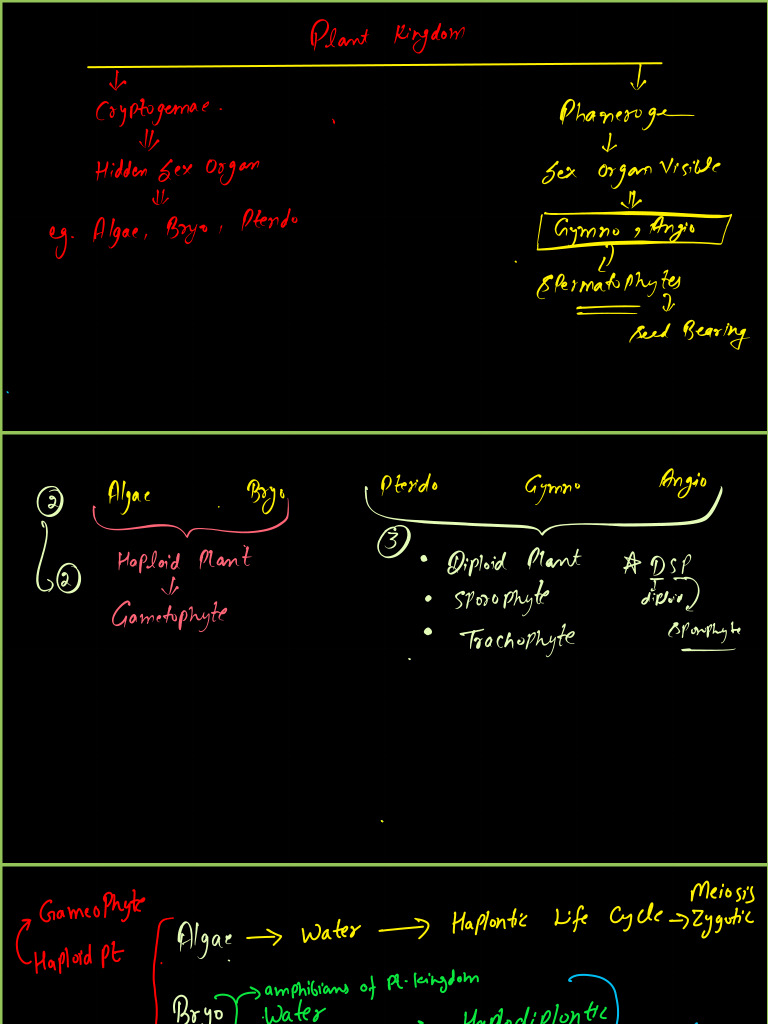 Plant Kingdom
Cryptogemae.
Phaneroge
Hidden Sex Organ
Sex Organ Visible
eg. Algae, Bryo, Pterido
Gymno, Angio
Spermatophytes
Seed Bearing
2 Algae Bryo Pterido Gymno Angio
2 Haploid Plant
Gametophyte
3 • Diploid Plant
• Sporophyte
• Trachophyte
☆ DSP
diploid
Sporophyte
Gameophyte
Haploid Pt
Algae → Water → Haplontic Life Cycle → Meiosis Zygotic
Bryo → amphibians of Pt. kingdom
Water → Haplodiplontic